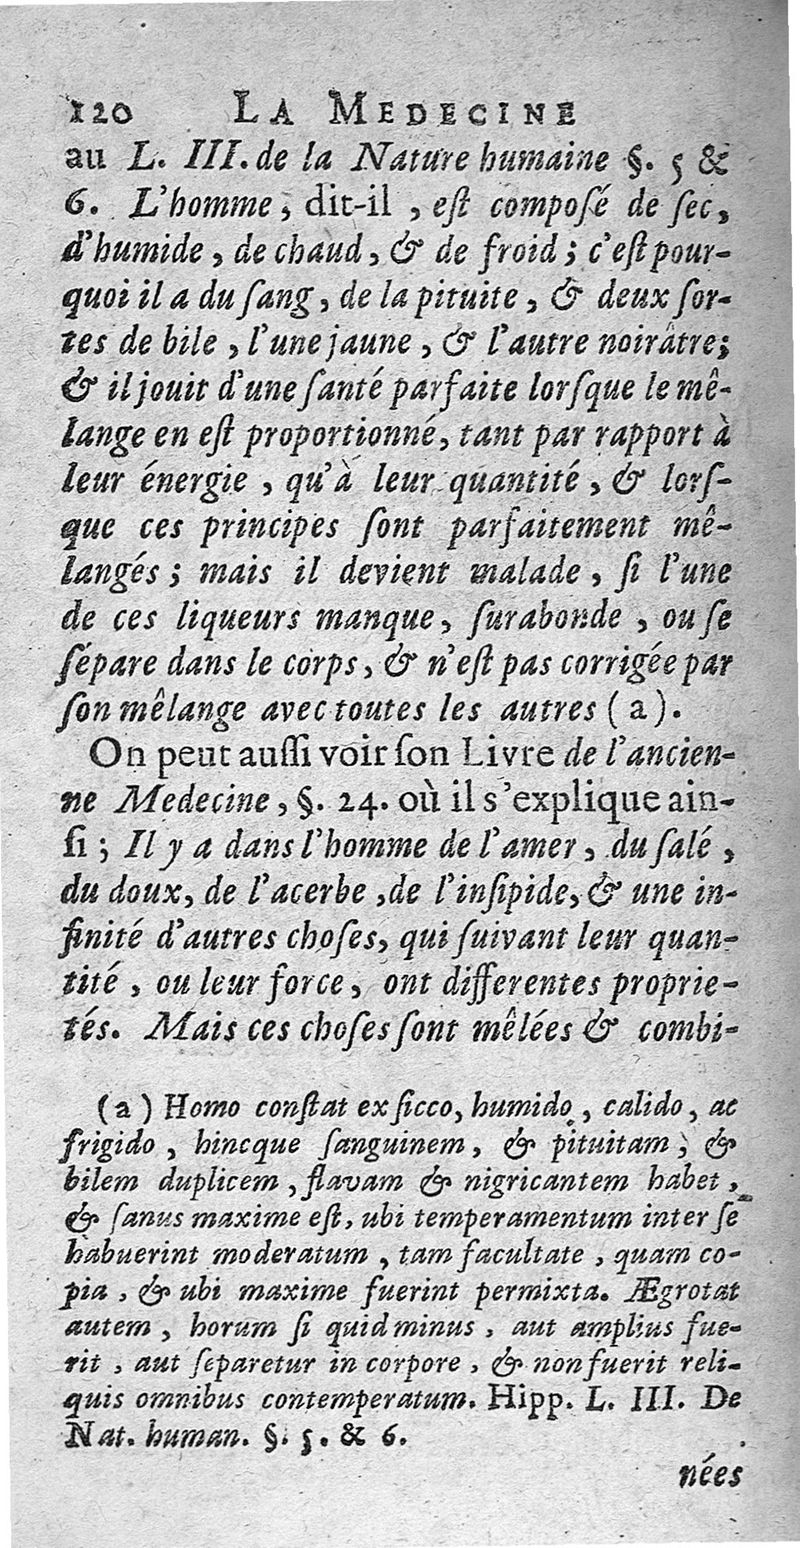 120 LA MEDECINE
au L. III. de la Nature humaine §. 5 &
6. L'homme, dit-il, eſt compoſé de ſec,
d'humide, de chaud, & de froid; c'eſt pour-
quoi il a du ſang, de la pituite, & deux ſor-
tes de bile, l'une jaune, & l'autre noirâtre;
& il jouit d'une ſanté parfaite lorſque le mê-
lange en eſt proportionné, tant par rapport à
leur énergie, qu'à leur quantité, & lorſ-
que ces principes ſont parfaitement mê-
langés; mais il devient malade, ſi l'une
de ces liqueurs manque, ſurabonde, ou ſe
ſépare dans le corps, & n'eſt pas corrigée par
ſon mêlange avec toutes les autres (a).
On peut auſſi voir ſon Livre de l'ancien-
ne Medecine, §. 24. où il s'explique ain-
ſi; Il y a dans l'homme de l'amer, du ſalé,
du doux, de l'acerbe, de l'inſipide, & une in-
finité d'autres choſes, qui ſuivant leur quan-
tité, ou leur force, ont differentes proprie-
tés. Mais ces choſes ſont mêlées & combi-
(a) Homo conſtat ex ſicco, humido, calido, ac
frigido, hincque ſanguinem, & pituitam, &
bilem duplicem, flavam & nigricantem habet,
& ſanus maxime eſt, ubi temperamentum inter ſe
habuerint moderatum, tam facultate, quam co-
pia, & ubi maxime fuerint permixta. Ægrotat
autem, horum ſi quid minus, aut amplius fue-
rit, aut ſeparetur in corpore, & non fuerit reli-
quis omnibus contemperatum. Hipp. L. III. De
Nat. human. §. 5. & 6.
nées